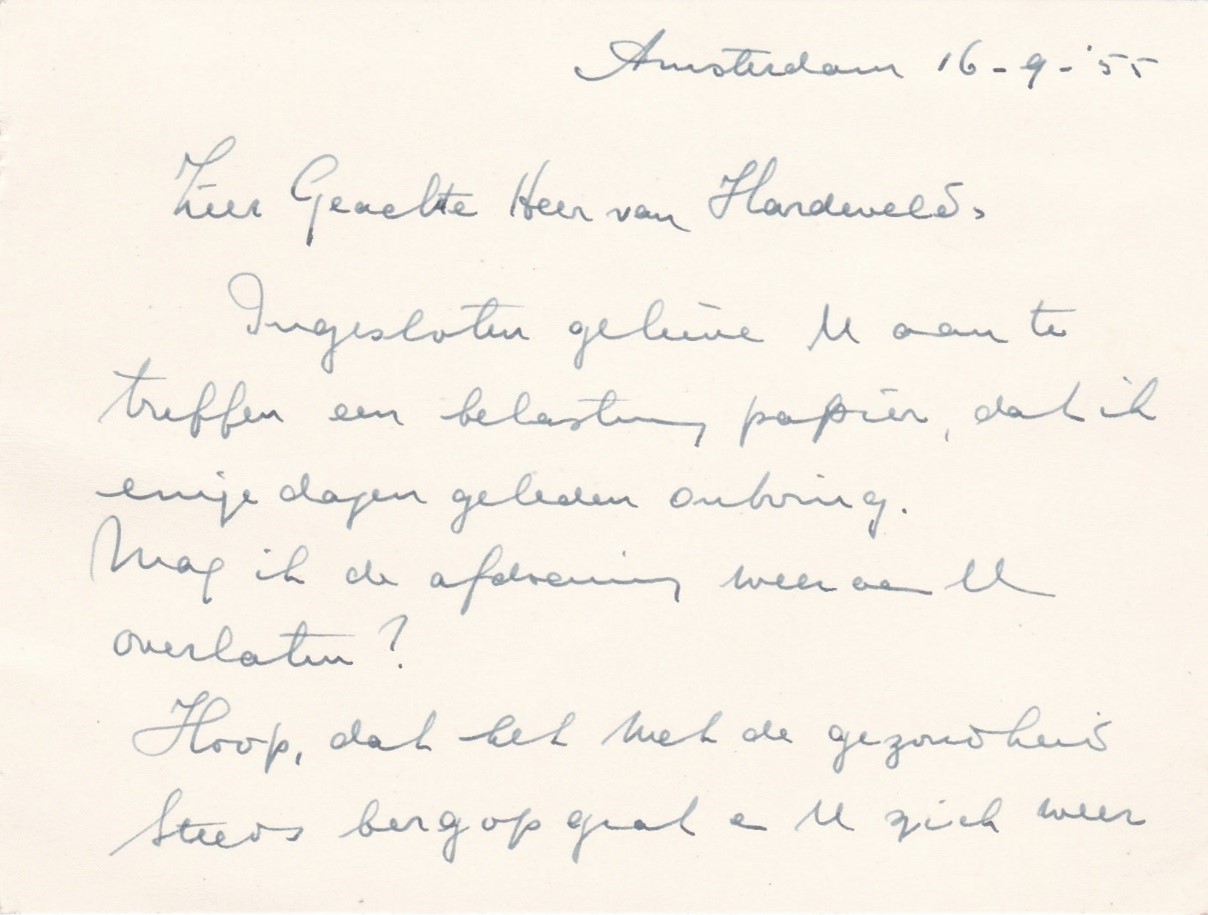 Amsterdam 16-9-'55
Zeer Geachte Heer van Hardeveld,
Ingesloten gelieve U aan te
treffen een belasting papier, dat ik
enige dagen geleden ontving.
Mag ik de afdoening weer aan U
overlaten?
Hoop, dat het met de gezondheid
steeds bergop gaat en U zich weer